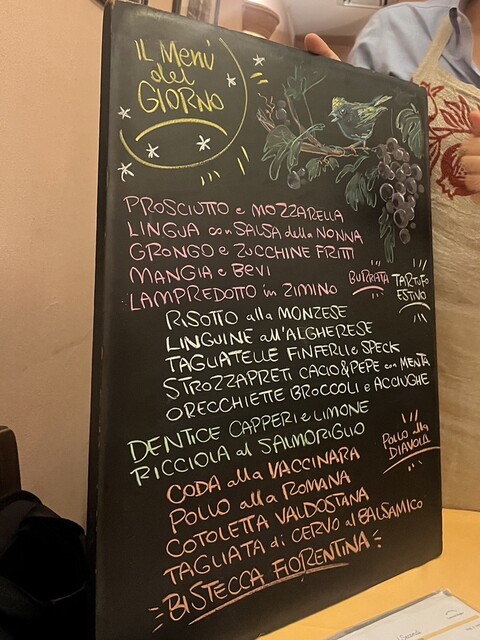 IL Menù
del
GIORNO
PROSCIUTTO e MOZZARELLA
LINGUA con SALSA della NONNA
GRONGO e ZUCCHINE FRITTI
MANGIA e BEVI
BURRATA
TARTUFO
ESTIVO
LAMPREDOTTO in ZIMINO
RISOTTO alla MONZESE
LINGUINE all'ALGHERESE
TAGLIATELLE FINFERLI e SPECK
STROZZAPRETI CACIO&PEPE con MENTA
ORECCHIETTE BROCCOLI e ACCIUGHE
DENTICE CAPPERI e LIMONE
RICCIOLA al SALMORIGLIO
POLLO alla
DIAVOLA
CODA alla VACCINARA
POLLO alla ROMANA
COTOLETTA VALDOSTANA
TAGLIATA di CERVO al BALSAMICO
BISTECCA FIORENTINA